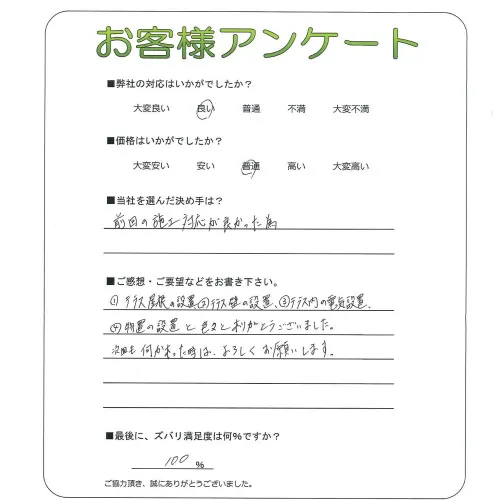 お客様アンケート
■弊社の対応はいかがでしたか？
大変良い 良い 普通 不満 大変不満
■価格はいかがでしたか？
大変安い 安い 普通 高い 大変高い
■当社を選んだ決め手は？
前回の施工対応が良かった為
■ご感想・ご要望などをお書き下さい。
① テラス屋根の設置②テラス壁の設置、③テラス内の電気設置、
④物置の設置と色々とありがとうございました。
次回も何かあった時は、よろしくお願いします。
■最後に、ズバリ満足度は何%ですか？
100 %
ご協力頂き、誠にありがとうございました。